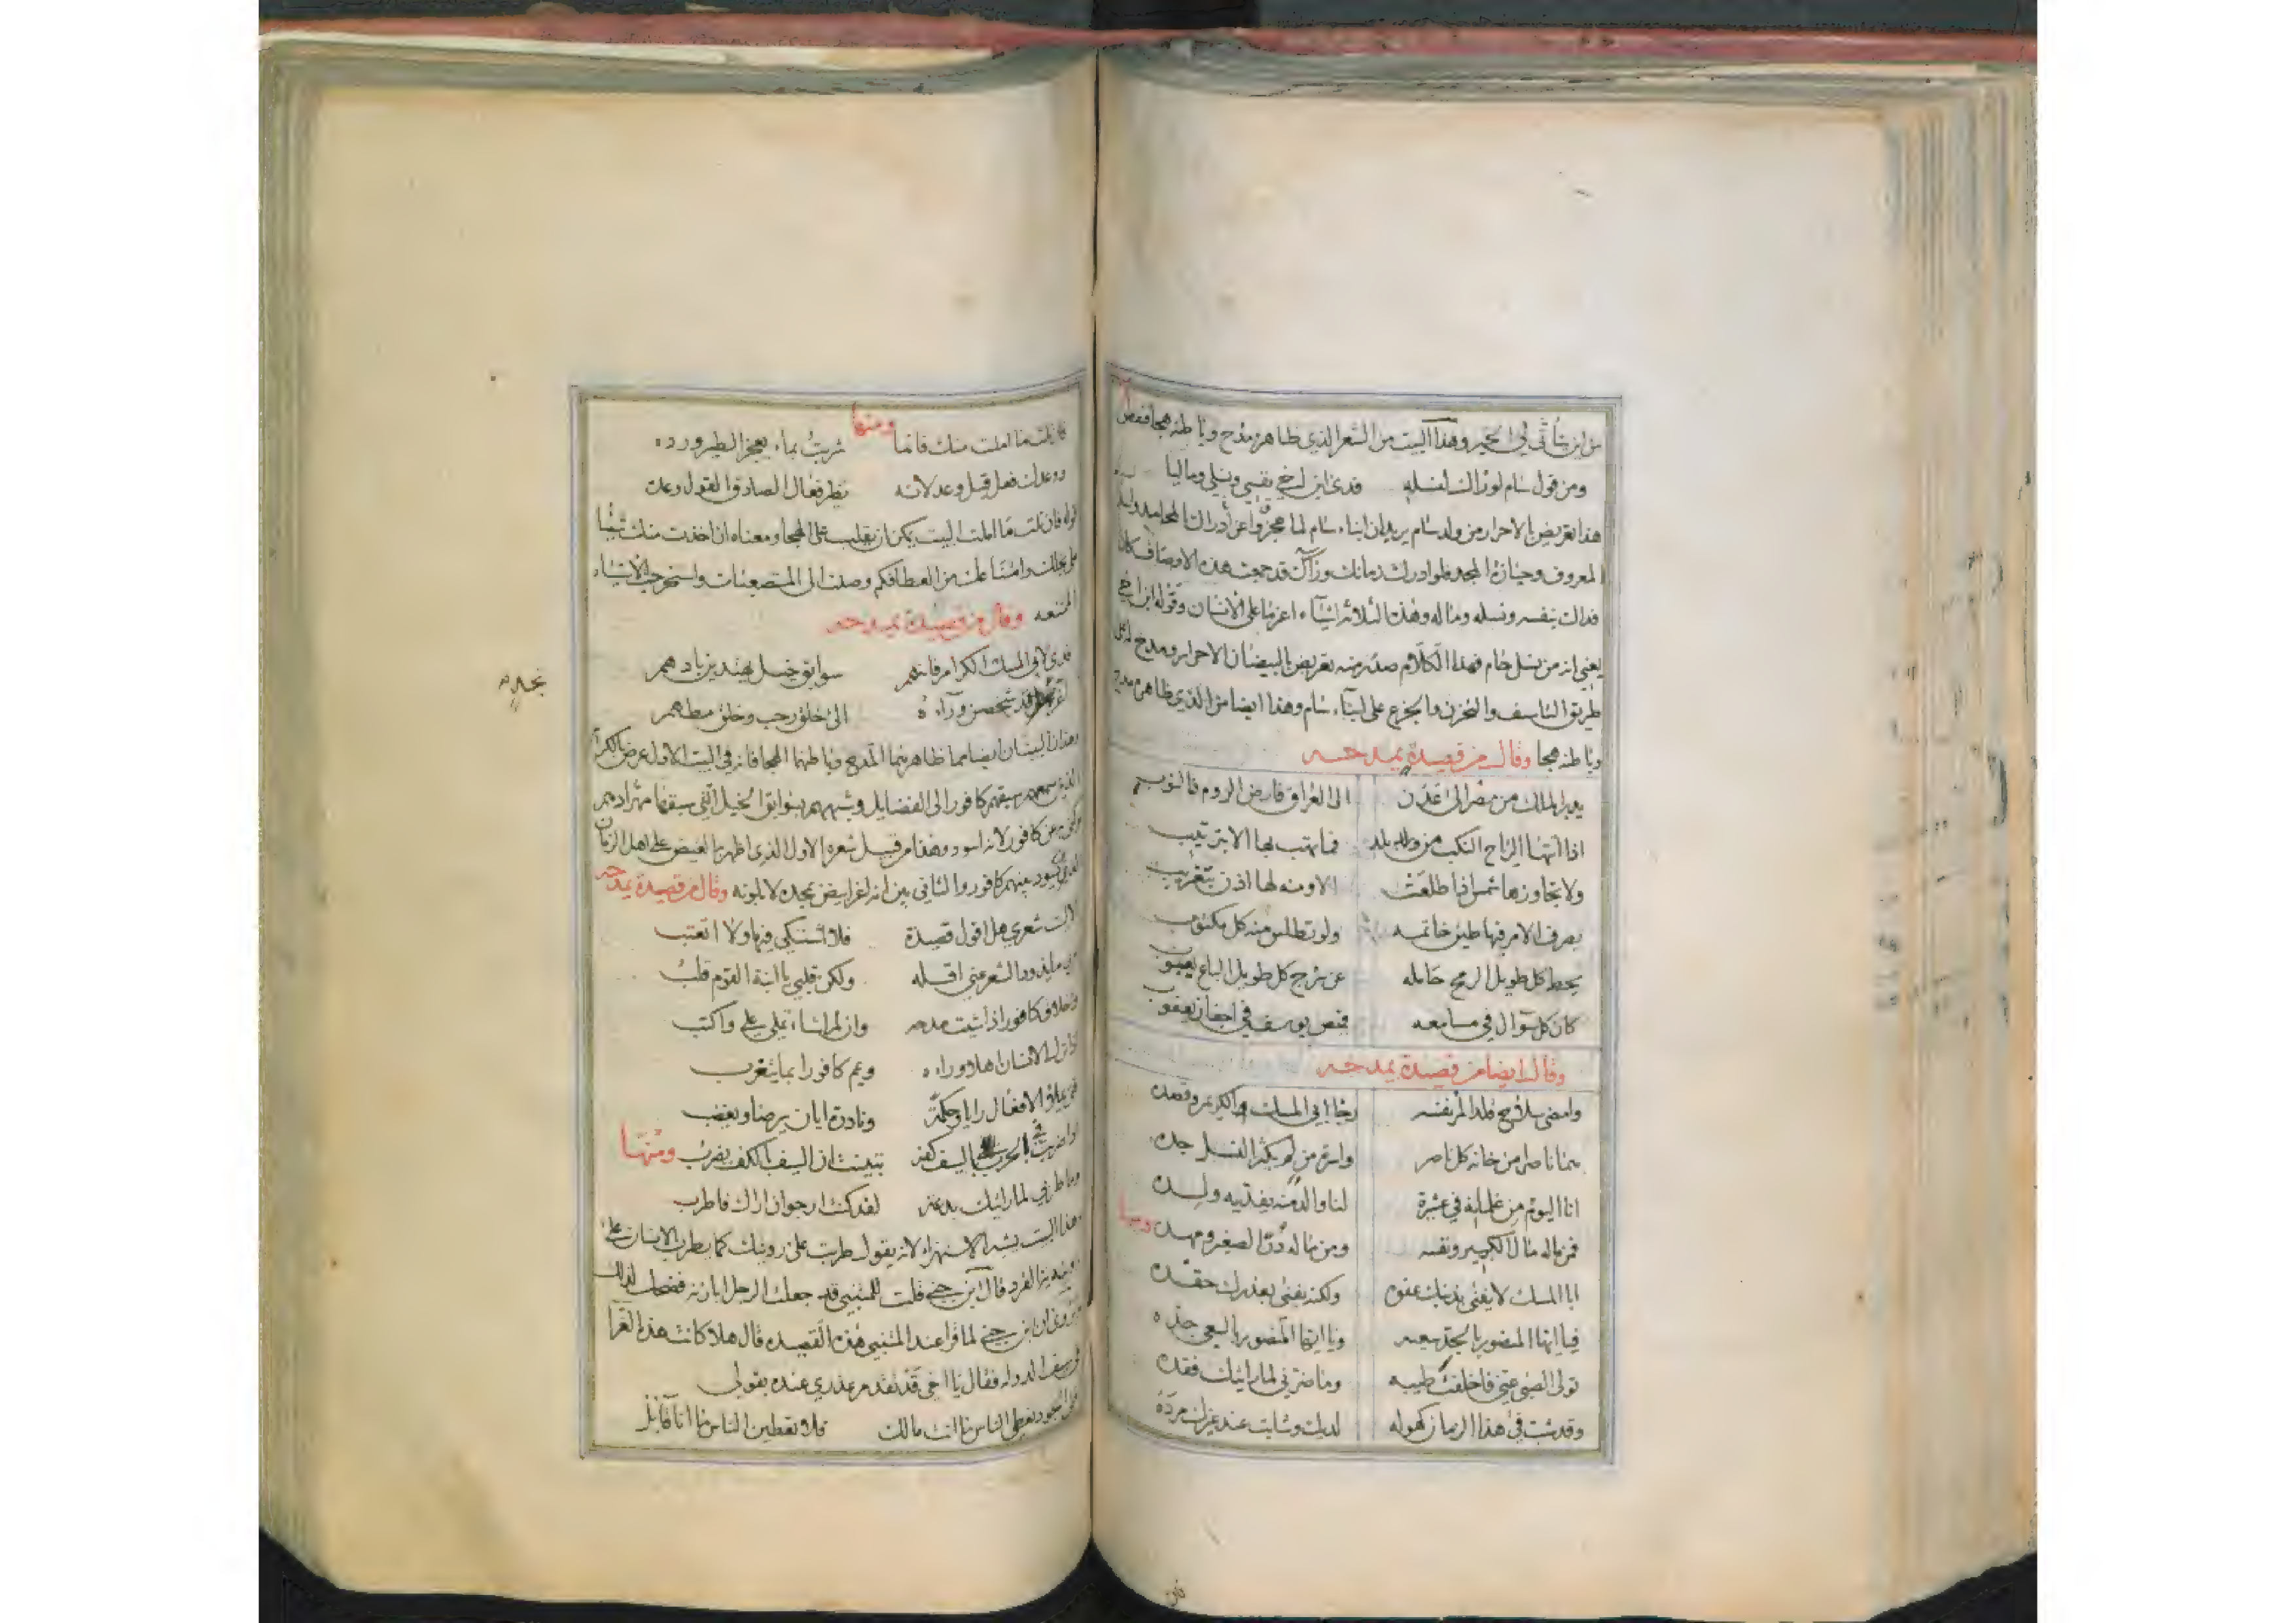 من اين يتأتى لى الخير وهذا البيت من الشعر الذي ظاهره مدح وباطنه هجا
ومن قول سام لو راك لنسله فدى ابن اخي نفسي ونسلي وماليا
هذا تعريض بالاحرار من ولد سام يريد ان ابناء سام لما عجزوا عن ادراك المحامد
المعروف وحيازة المجد فلو ادرك زمانك ورآك قد جمعت هذه الاوصاف كان
فداك بنفسه ونسله وماله وهذه الثلاثه اشيآء اعز ما على الانسان وقوله ابن اخي
يعني انه من نسل حام فهذا الكلام صدر منه تعريض بالبيضان الاحرار ومدح
طريق التاسف والتحزن والجزع على ابنآء سام وهذا ايضا من الذي ظاهره مدح
وباطنه هجا وقال من قصيدة يمدحه
يدبر الملك من مصر الى عدن الى العراق فارض الروم فالنوب
اذا اتتها الرياح النكب من بلد فما تهب بها الا بترتيب
ولا تجاوزها شمس اذا طلعت الا ومنه لها اذن بتغريب
يصرف الامر فيها طين خاتمه ولو تطلس منه كل مكتوب
يحط كل طويل الرمح حامله عن سرج كل طويل الباع يعبوب
كان كل سوال في مسامعه قميص يوسف في اجفان يعقوب
وقال ايضا من قصيدة يمدحه
وامضى سلاح قلد المرء نفسه رجا ابي المسك الكريم وقصده
هما ناصرا من خانه كل ناصر واسرة من لم يكثر النسل جده
انا اليوم من غلمانه في عشيرة لنا والد منه يفديه ولده
فمن ماله مال الكبير ونفسه ومن ماله در الصغير ومهده ومنها
ابا المسك لا يفنى بذنبك عفوه ولكنه يفنى بعذرك حقده
فيا ايها المنصور بالجد سعيه ويا ايها المنصور بالسعي جده
تولى الصبى عني فاخلفت طيبه وما ضرني لما رايتك فقده
وقد شب في هذا الزمان كهوله لديك وشابت عند غيرك مرده
فان نلت ما املت منك فانما شربت بماء يعجز الطير ورده
ووعدك فعل قبل وعد لانه نظير فعال الصادق القول وعده
قوله فان نلت ما املت البيت يمكن ان يقلب على الهجا ومعناه ان اخذت منك شيئا
على بخلك وامتناعك من العطا فكم وصلت الى المتصعبات واستخرجت الاشياء
الممتنعه وقال من قصيدة يمدحه
فدى لابي المسك الكرام فانهم سوابق خيل يهتدين بادهم
قد شخصن ورآءه الى خلق رحب وخلق مطهم
بمجده
وهذان البيتان ايضا مما ظاهرهما المدح وباطنهما الهجا فانه في البيت الاول عرض بالكرام
الذين سبقهم كافور الى الفضايل وشبههم بسوابق الخيل التي سبقها مهر ادهم
وكنى به عن كافور لانه اسود وهذا من قبيل شعره الاول الذي اظهر به الغيض على اهل الزمان
الذي يسود بينهم كافور والثاني بين انه اغر ابيض بمجده لا بلونه وقال من قصيدة يمدحه
الا ليت شعري هل اقول قصيدة فلا اشتكي فيها ولا اتعتب
وبي ما يذود الشعر عني اقله ولكن قلبي يا ابنة القوم قلب
واخلاق كافور اذا شيت مدحه وان لم اشا تملي علي واكتب
اذا ترك الانسان اهلا وراءه ويمم كافورا بما يتغرب
فتى يملاء الافعال رايا وحكمة ونادرة ايان يرضا ويغضب
اذا ضربت في الحرب بالسيف كفه تبينت ان السيف بالكف يضرب ومنها
وما طربي لما رايتك بدعة لقد كنت ارجو ان اراك فاطرب
هذا البيت يشبه الاستهزاء لانه يقول طربت على رويتك كما يطرب الانسان على
القرد قال ابن جني قلت للمتنبي قد جعلت الرجل ابا زنه فضحك لذلك
ان ابن جني لما قرا عند المتنبي هذه القصيده قال هلا كانت هذه الغرآ
في سيف الدوله فقال يا اخي قد تقدم عذري عنده بقولي
اخا الجود تعطي الناس ما انت مالك فلا تعطين الناس ما انا قايل